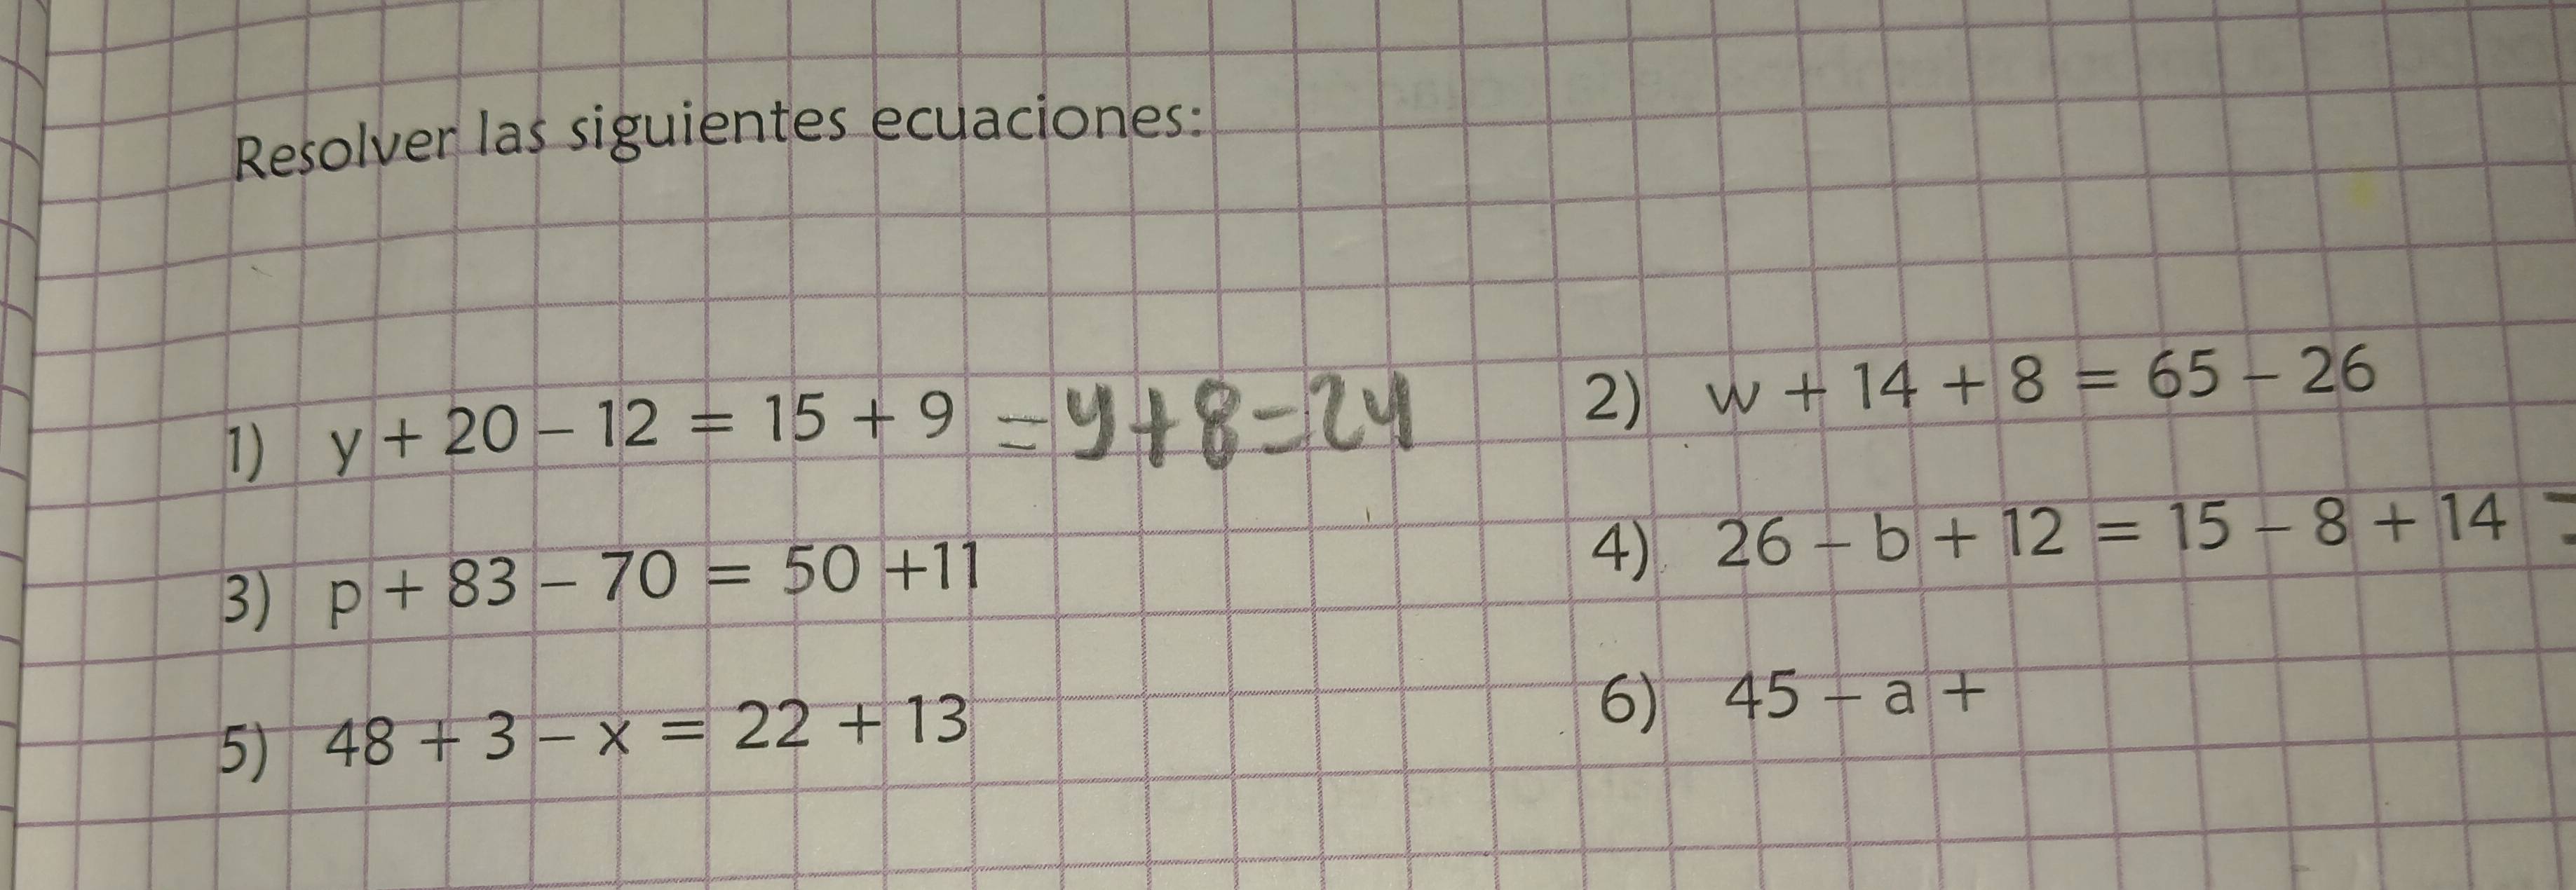 Resolver las siguientes ecuaciones:
1) y + 20 – 12 = 15 + 9 = y + 8 = 24
2) w + 14 + 8 = 65 – 26
3) p + 83 – 70 = 50 +11
4) 26 – b + 12 = 15 – 8 + 14 =
5) 48 + 3 – x = 22 + 13
6) 45 – a +